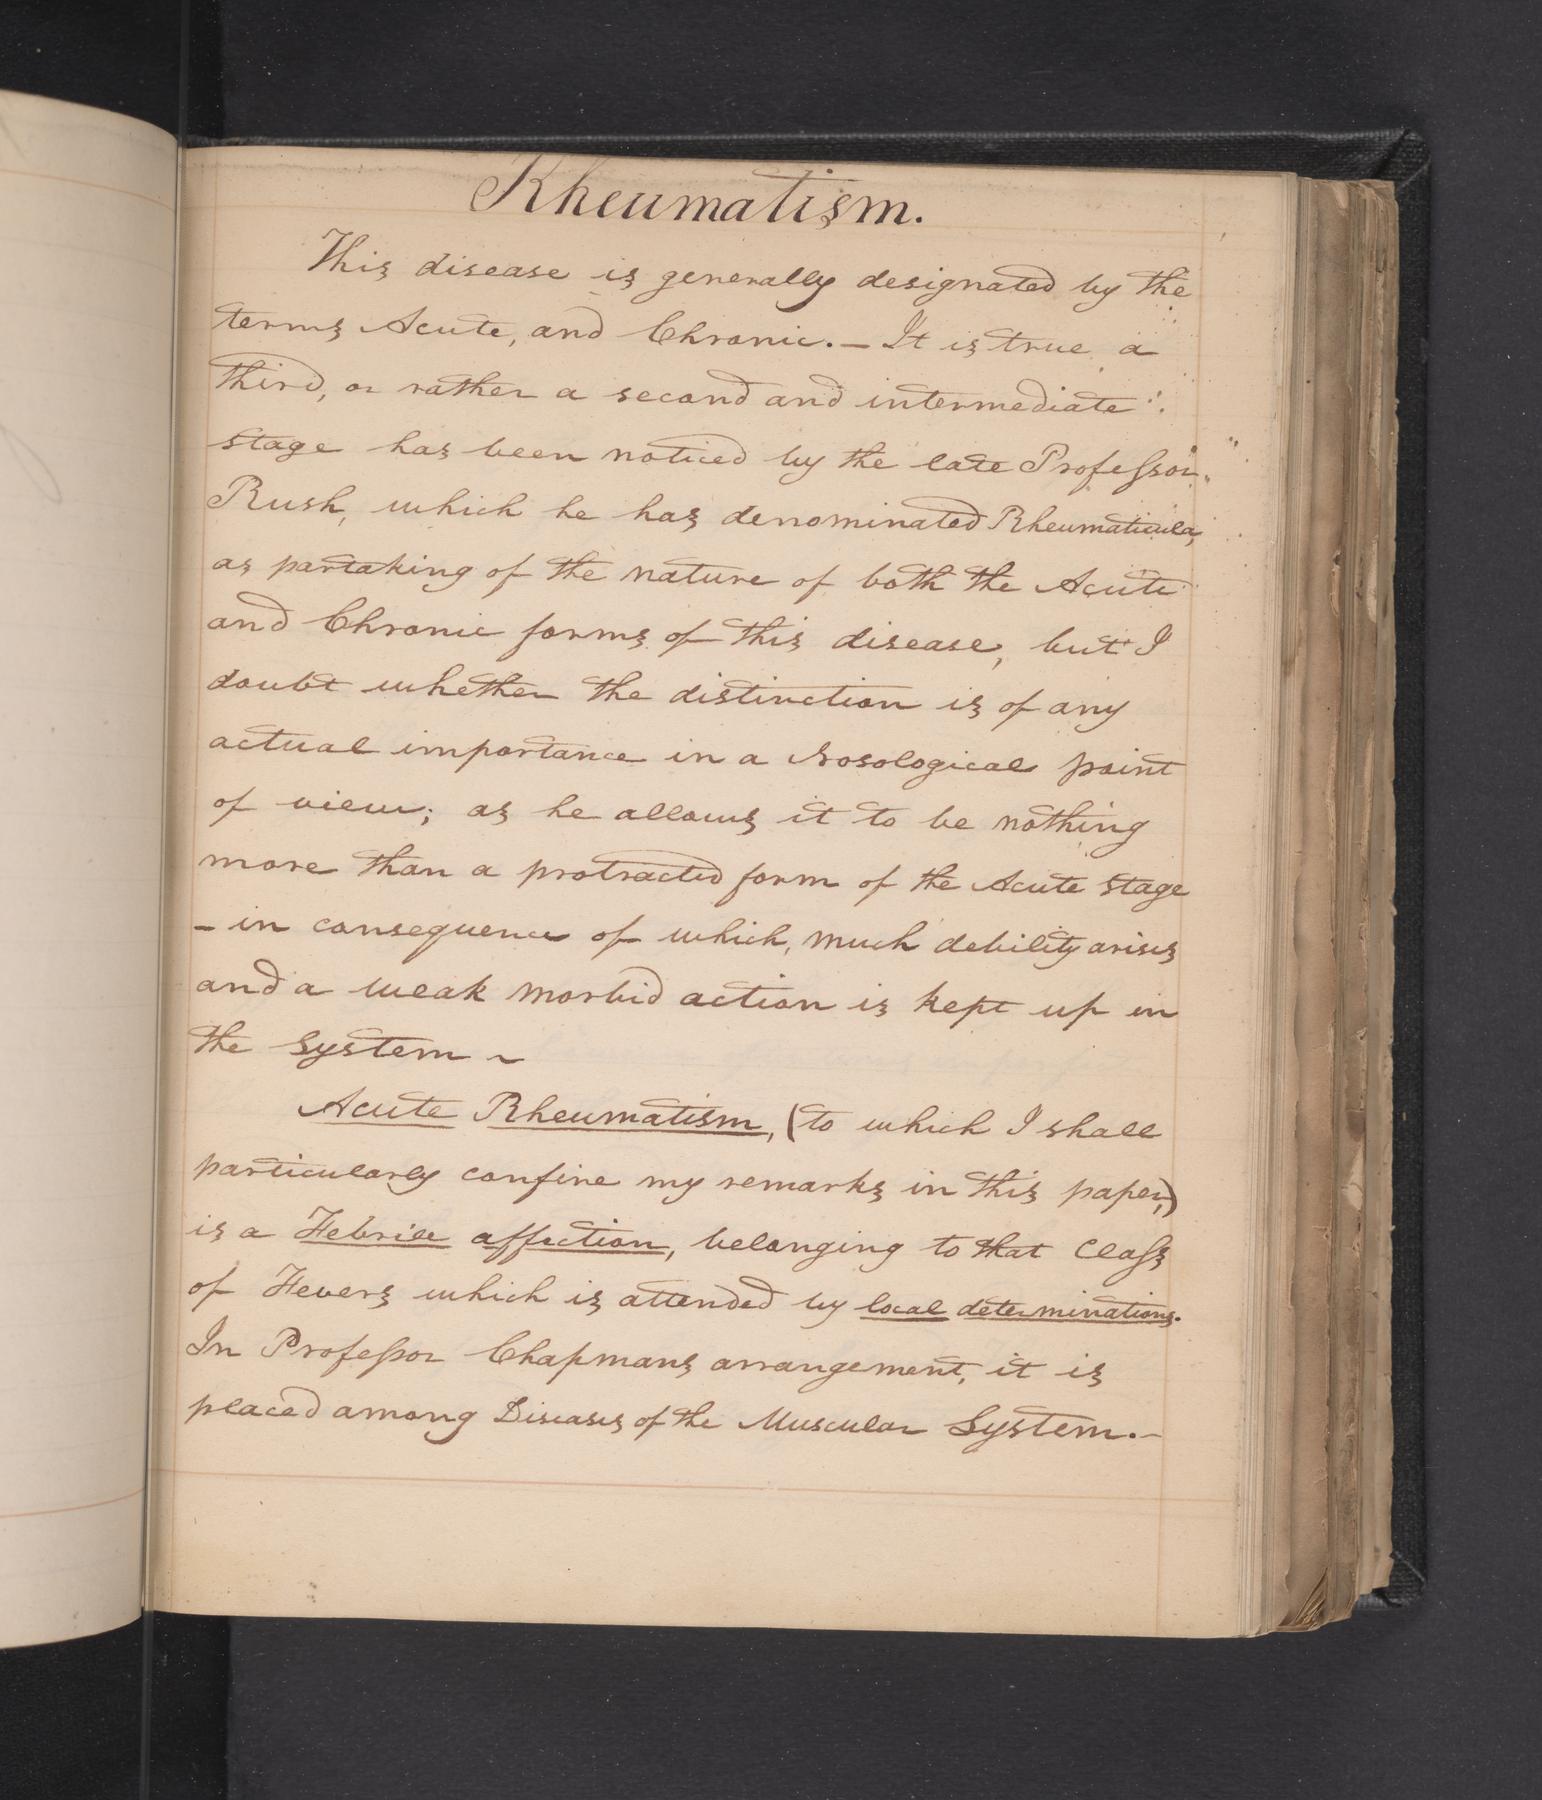 Rheumatism.
This disease is generally designated by the
terms Acute, and Chronic. – It is true a
third, or rather a second and intermediate
stage has been noticed by the late Professor
Rush, which he has denominated Rheumaticula,
as partaking of the nature of both the Acute
and Chronic forms of this disease, but I
doubt whether the distinction is of any
actual importance in a Nosological point
of view; as he allows it to be nothing
more than a protracted form of the Acute stage
– in consequence of which, much debility arises
and a weak morbid action is kept up in
the System ~
Acute Rheumatism, (to which I shall
particularly confine my remarks in this paper,)
is a Febrile affection, belonging to that Class
of Fevers which is attended by local determinations.
In Professor Chapmans arrangement, it is
placed among Diseases of the Muscular System. –